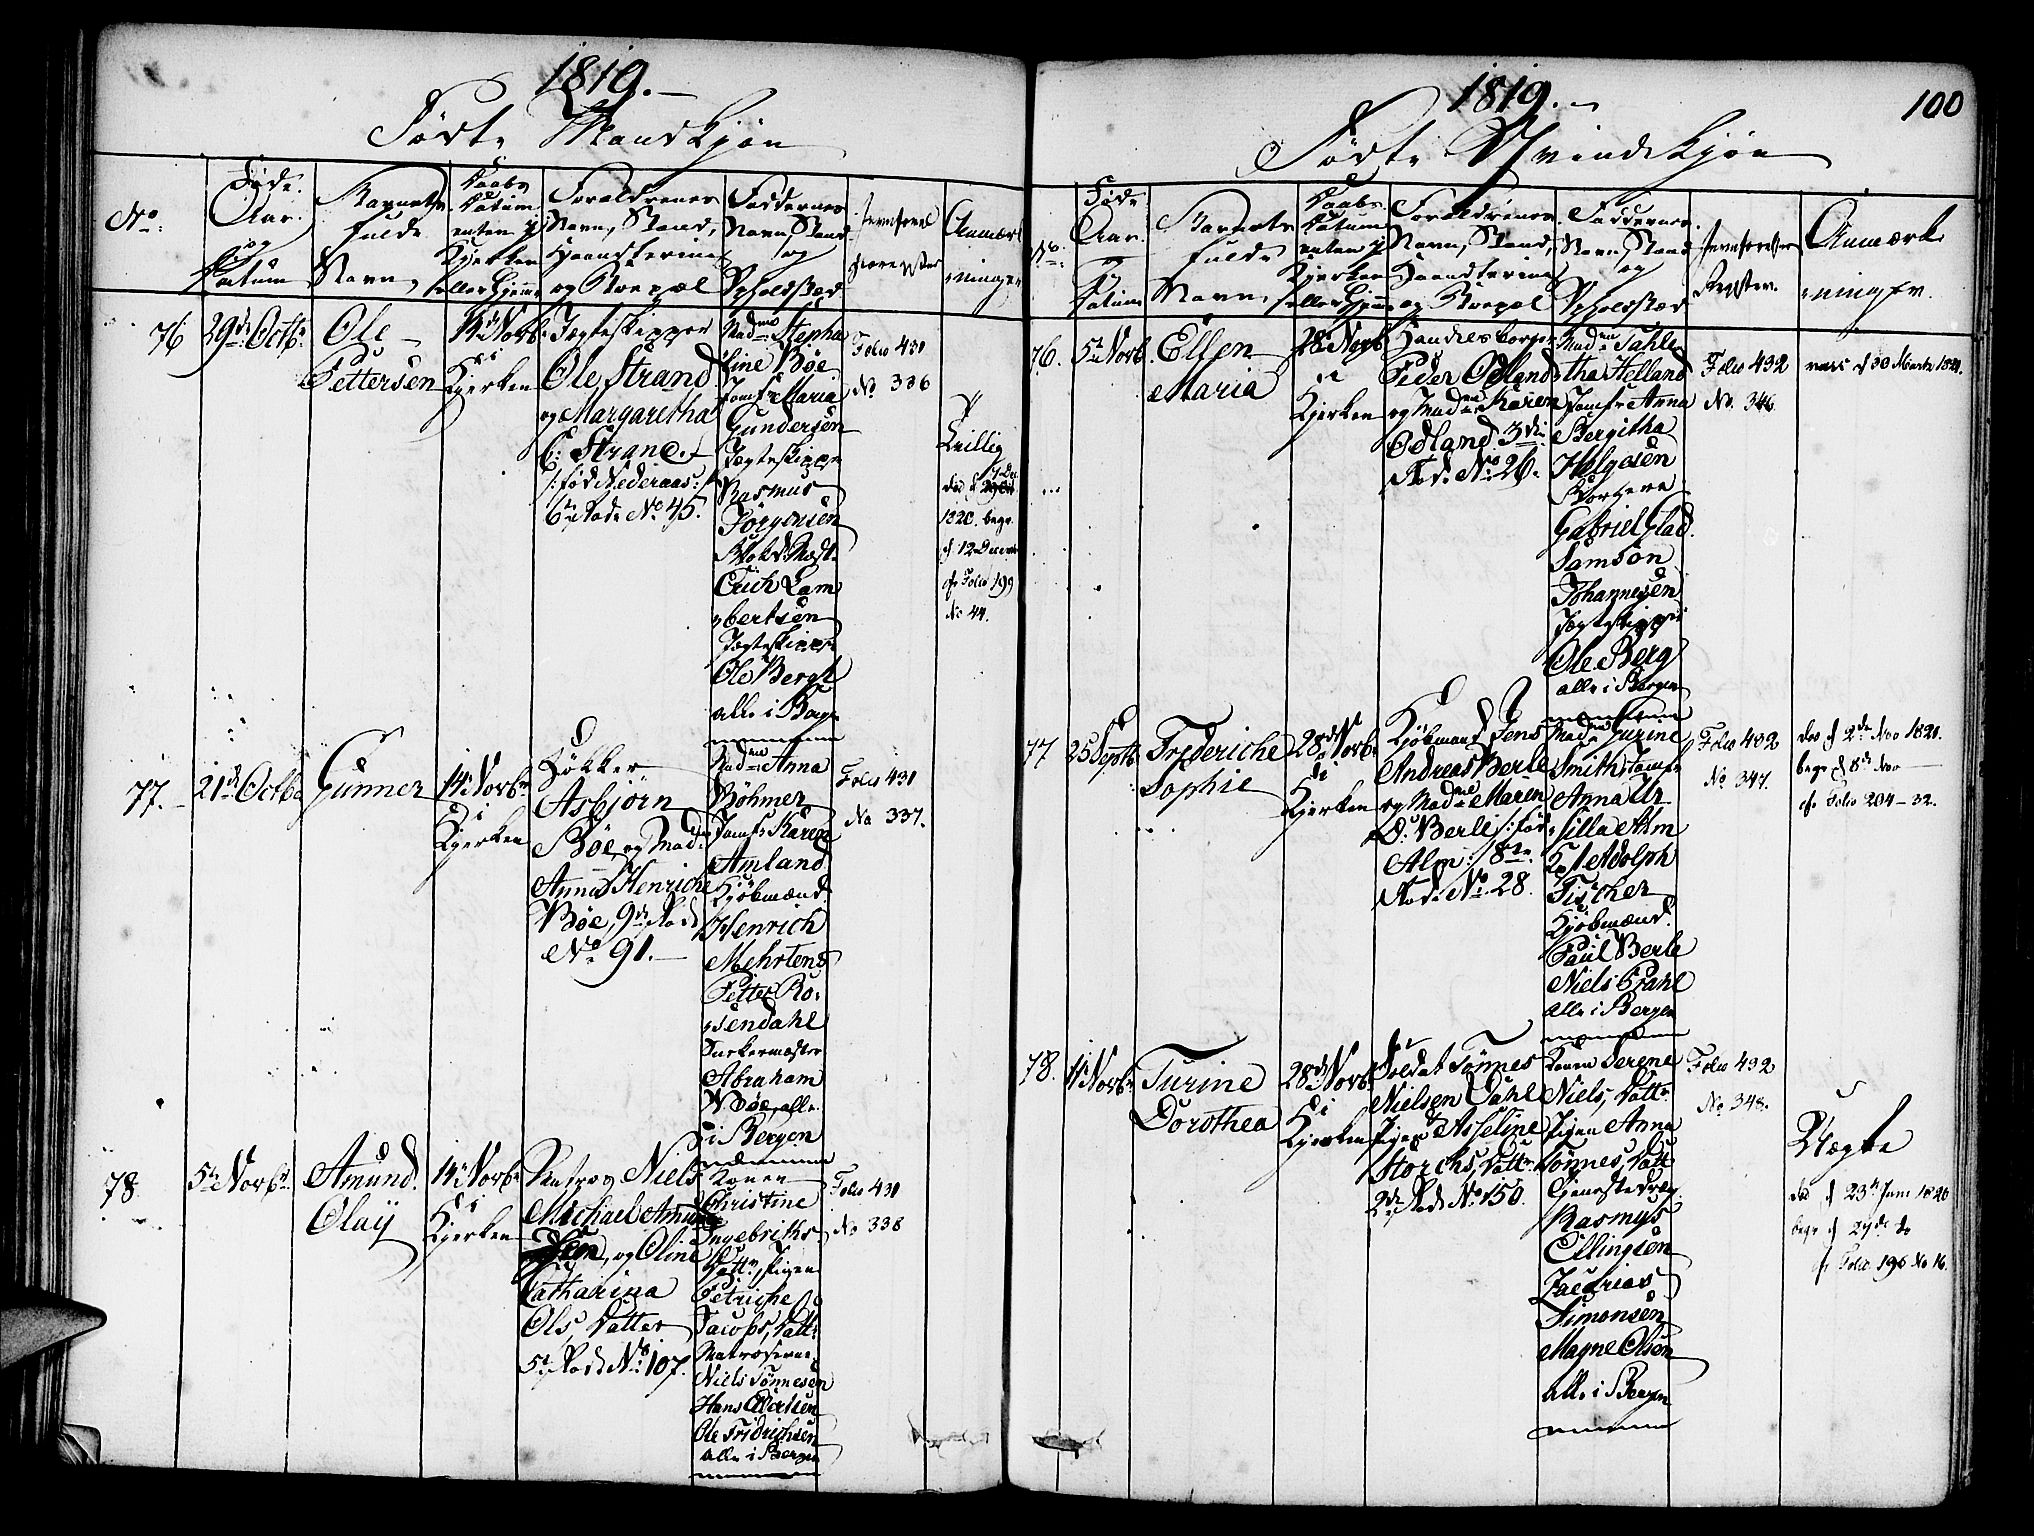 1819.
Födte Mandkjön
No:
Föde.
Aar.
og
Datum
Barnets
fulde
Navn,
Daabs
Datum
enten i
Kjerken
eller Hjemme
Foraldrenes
Navn, Stand,
Haandtering
og Boepæl
Faddernes
Navn, Stand
og
Opholdsted
Anmærk
ninger
76
29de Octbr
Ole
Pettersen
Norbr
i
Kjerken
Jægteskipper
Ole Strand
og Margaretha
C: Strand
/:född Nederaas:/
6te Rode No 45.
Madme Stepha
line Böe
Jomfr Maria
Gundersen
Jægteskipper
Rasmus
Jörgensen
Erich Lam
bertsen
Jægteskipper
Ole Bergt
alle i Bergen
Folio 431
No 336
död
1820. begr.
d. 12 December
cfr Folio 199
No 44.
77.
21de Octbr
Gunner
14de Novbr
i
Kjerken
Asbjörn
Böe, og Mad
Anna Henriche
Böe, 9de Rode
No 91.
Madme Anna
Böhmer
Jomfr Karen
Amland
Kjöbmænd.
Henrich
Mehrtens
Petter Ro-
sendahl
Abraham
Böe, alle
i Bergen
Folio 431
No 337.
78
5te Novbr
Amund
Olaÿ
14de Novbr
i
Kjerken
Matros Niels
Michael Amund
sen, og Oline
Catharina
Ols, Datter
5te Rode No 107.
Konen
Christine
Ingebriks
Datter, Pigen
Petriche
Jacobs, Datt:
Matroserne
Niels Tönnesen
Hans Olertsen
Ole Fridrichsen
Alle i Bergen
Folio 431
No 338
1819.
100
Födte Qvindekjön
No:
Föde
Aar.
og
Datum
Barnets
fulde
Navn,
Daabs
Datum
enten i
Kjerken
eller Hjemme
Foraldrenes
Navn, Stand,
Haandtering
og Boepæl
Faddernes
Navn, Stand
og
Opholdsted
Jevnförelses
Register.
Anmærk
ninger.
76.
5te Novb
Ellen
Maria
28de Novb
i
Kjerken
Handelsborger
Peder Odland
og Madme Karen
Odland 3die
Rode No 26.
Madme Tahle
tha Helland
Jomfr Anna
Bergitha
Helgesen
Gabriel Glad
Samson
Johannesen
Jægteskipper
Ole Berg
alle i Bergen
Folio 432
No. 346
vacc d 30 Martz 1821.
77
25 Septb
Frederiche
Sophie
28de Novb
i
Kjerken
Kjöbmand Jens
Andreas Berle
og Madme Maren
D. Berle /: föd
Alm :/ 8de
Rode No 28.
Madme Jurine
Smith, Jomfr
Anna Ur
silla Alm
Adolph
Fischer
Kjöbmænd.
Paul Berle
Niels Prahl
alle i Bergen
Folio 432
No 347.
död d 2de Nov 1821.
begr d 8de Nov
cfr Folio 204-32.
78.
Novbr
Turine
Dorothea
28de Novb
i
Kjerken
Soldat Tönnes
Nielsen Dahl
Pigen Asseline
Storchs, Datter
2de Rode No 150.
Konen Serene
Niels, Datter
Pigen Anna
Tönnes, Datt
Tjenestedreng
Rasmus
Ellingsen
Zacharias
Simonsen
Magne Olsen
alle i Bergen
Folio 432
No 348.
Uægte
död d 23de Juni 1820
begr d 29de do
cfr Folio 196 No 16.